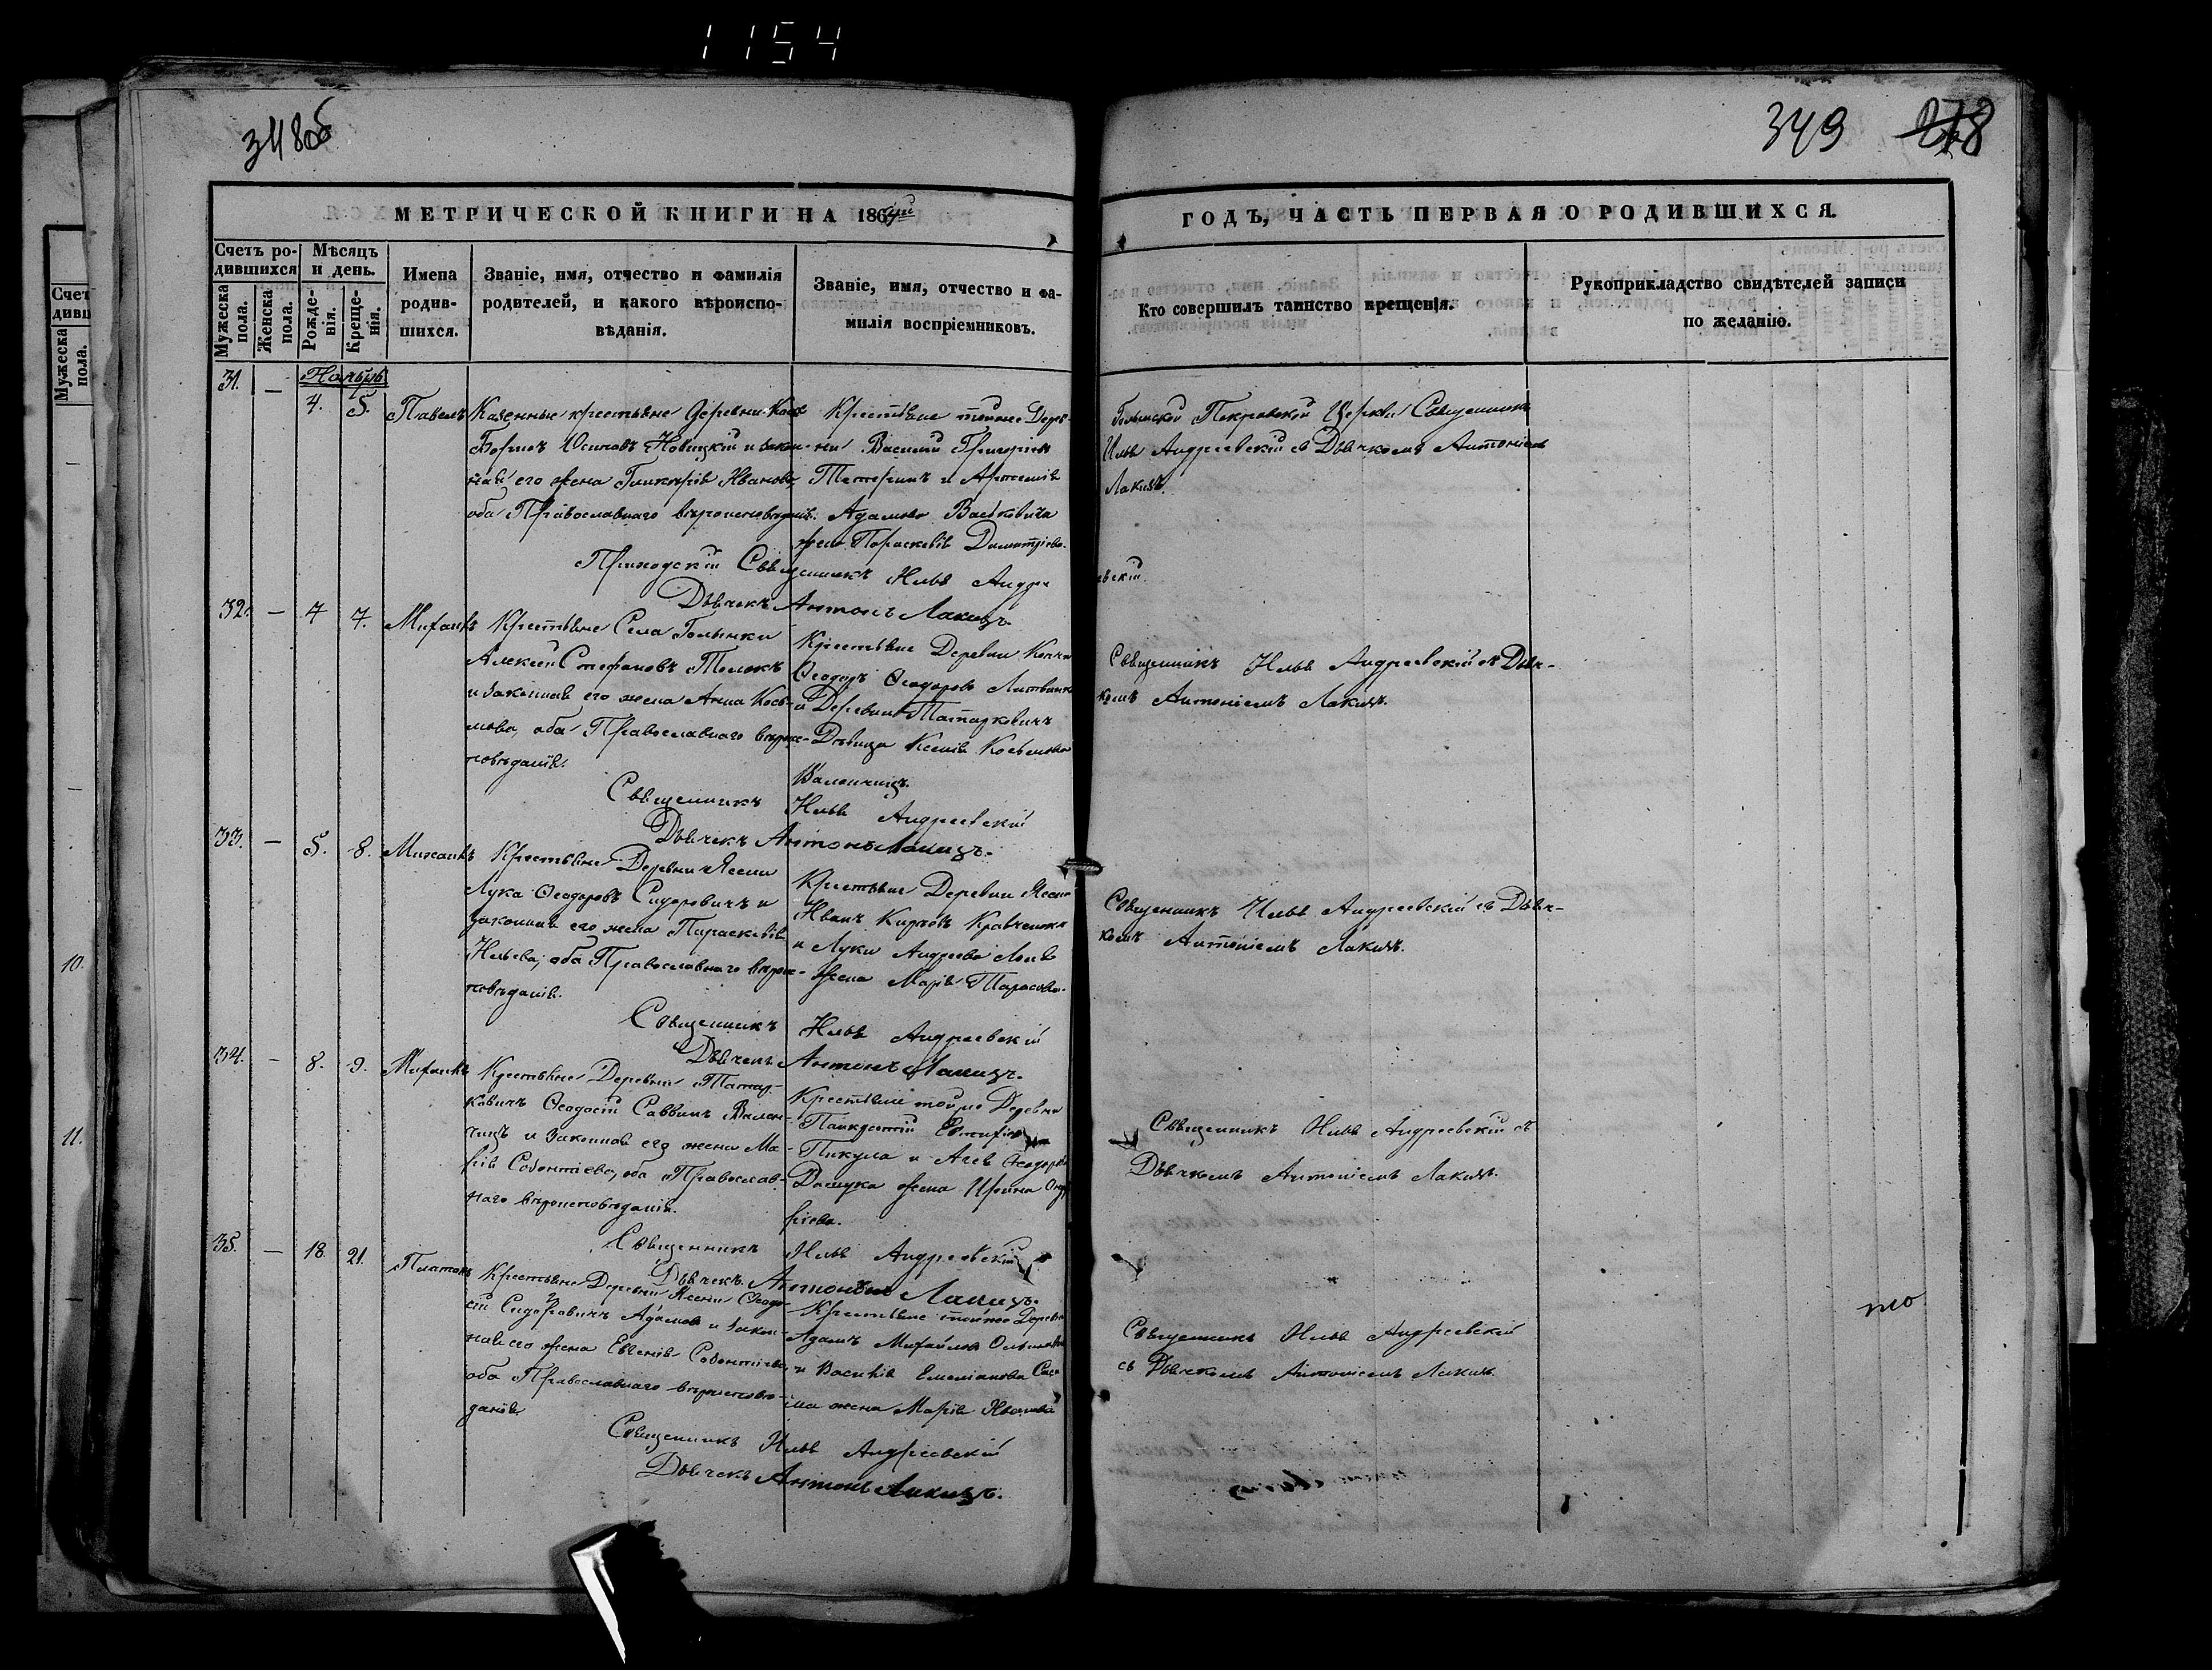 1154
348об
349 278
МЕТРИЧЕСКОЙ КНИГИ НА 1864й
ГОДЪ, ЧАСТЬ ПЕРВАЯ О РОДИВШИХСЯ.
Счетъ родившихся
Мѣсяцъ и день.
Мужеска пола.
Женска пола.
Рожденія.
Крещенія.
Имена родившихся.
Званіе, имя, отчество и фамилія родителей, и какого вѣроисповѣданія.
Званіе, имя, отчество и фамилія воспріемниковъ.
Кто совершилъ таинство крещенія.
Рукоприкладство свидѣтелей записи по желанію.
Счет
дивш
Мужеска пола.
10.
11.
31. — Ноябрь
4. 5. Павелъ
Казенные крестьяне деревни
Осиповъ Новицкій и закон-
ная его жена Гликерія Иванова
оба Православнаго вѣроисповѣданія.
Крестьяне тойже Дерев-
ни Василій Григоріевъ
и Артемія
Адамова Васковича
жена Параскевія Димитріева.
Приходскій Священникъ Илья Андре
евскій.
Дьячекъ Антонъ Лакизъ.
Голынской Покровской Церкви Священникъ
Илья Андреевскій съ Дьячкомъ Антоніемъ
Лакизъ.
32. — 4 7. Михаилъ
Крестьяне Села Голынки
Алексѣй Стефановъ
и законная его жена Анна Кось-
мова, оба Православнаго вѣроис-
повѣданія.
Крестьяне Деревни
Ѳеодоръ Ѳеодоровъ
и Деревни Татарковичъ
Дѣвица Ксенія Косьмова
Валенчицъ.
Священникъ Илья Андреевскій
Дьячекъ Антонъ Лакизъ.
Священникъ Илья Андреевскій съ Дьяч-
комъ Антоніемъ Лакизъ.
33. — 5. 8. Михаилъ
Крестьяне Деревни Ясени
Лука Ѳеодоровъ Сидоровичъ и
законная его жена Параскевія
Ильева, оба Православнаго вѣроис-
повѣданія.
Крестьяне Деревни Ясени
Иванъ Кириловъ
и Луки Андреева
жена Марія Тарасова.
Священникъ Илья Андреевскій
Дьячекъ Антонъ Лакизъ.
Священникъ Илья Андреевскій съ Дьяч-
комъ Антоніемъ Лакизъ.
34. — 8. 9. Михаилъ
Крестьяне Деревни Татар-
ковичъ Ѳеодосій Саввинъ Вален-
чицъ и законная его жена Ма-
рія оба Православ-
наго вѣроисповѣданія.
Крестьяне тойже Деревни
Пикула и
жена Ирина
Священникъ Илья Андреевскій
Дьячекъ Антонъ Лакизъ.
Священникъ Илья Андреевскій съ
Дьячкомъ Антоніемъ Лакизъ.
35. — 18. 21. Платонъ
Крестьяне Деревни Ясени
Сидоровичъ Адамовъ и закон-
ная его жена Евгенія
оба Православнаго вѣроисповѣ-
данія.
Крестьяне тойже Деревни
Адамъ Михайловъ
и Василія Емеліанова
жена Марія Иванова
Священникъ Илья Андреевскій
Дьячекъ Антонъ Лакизъ.
Священникъ Илья Андреевскій
съ Дьячкомъ Антоніемъ Лакизъ.